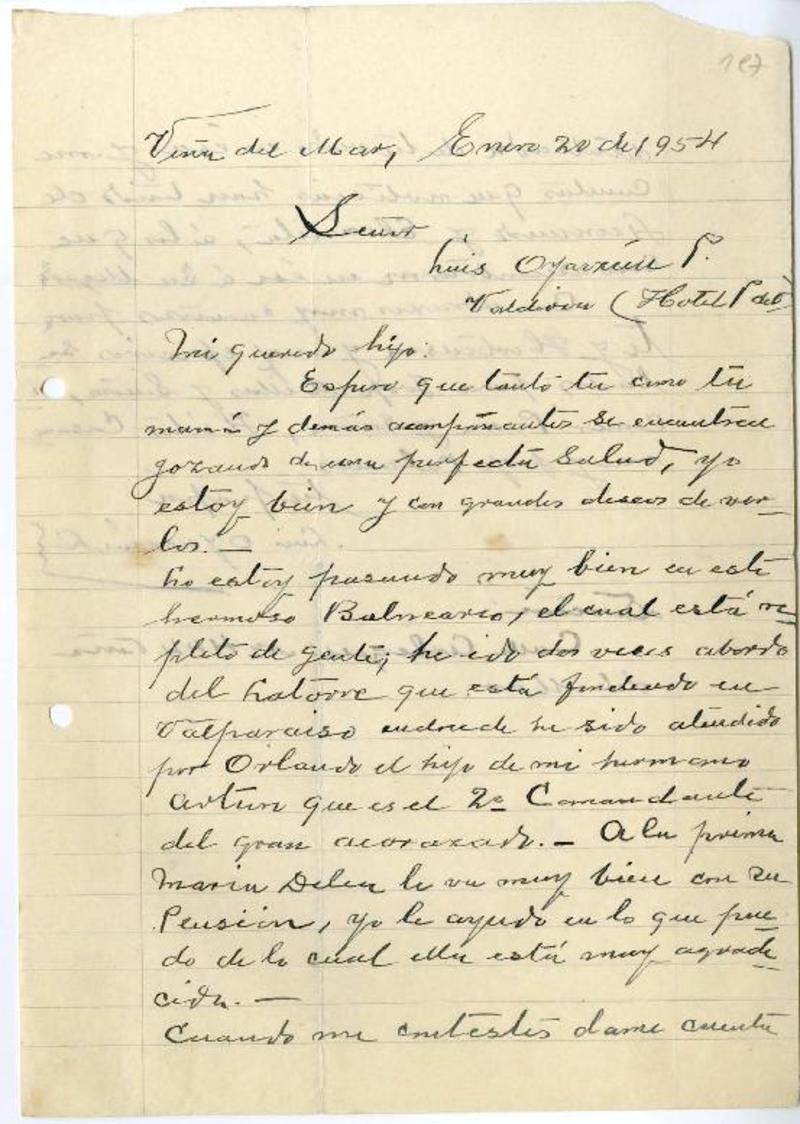 187
Viña del Mar, Enero 20 de 1954
Señor
Luis Oyarzún P.
Valdivia (Hotel P. de V.
Mi querido hijo:
Espero que tanto tu como tu
mamá y demás acompañantes se encuentren
gozando de una perfecta salud, yo
estoy bien y con grandes deseos de ver-
los. —
Lo estoy pasando muy bien en este
hermoso Balneario, el cual está re-
pleto de gente; he ido dos veces abordo
del Latorre que está fondeado en
Valparaiso endonde he sido atendido
por Orlando el hijo de mi hermano
Arturo que es el 2º Comandante
del gran acorazado. — A la prima
Maria Delia le va muy bien con su
Pensión, yo le ayudo en lo que pue-
do de lo cual ella está muy agrade-
cida. —
Cuando me contestes dame cuenta